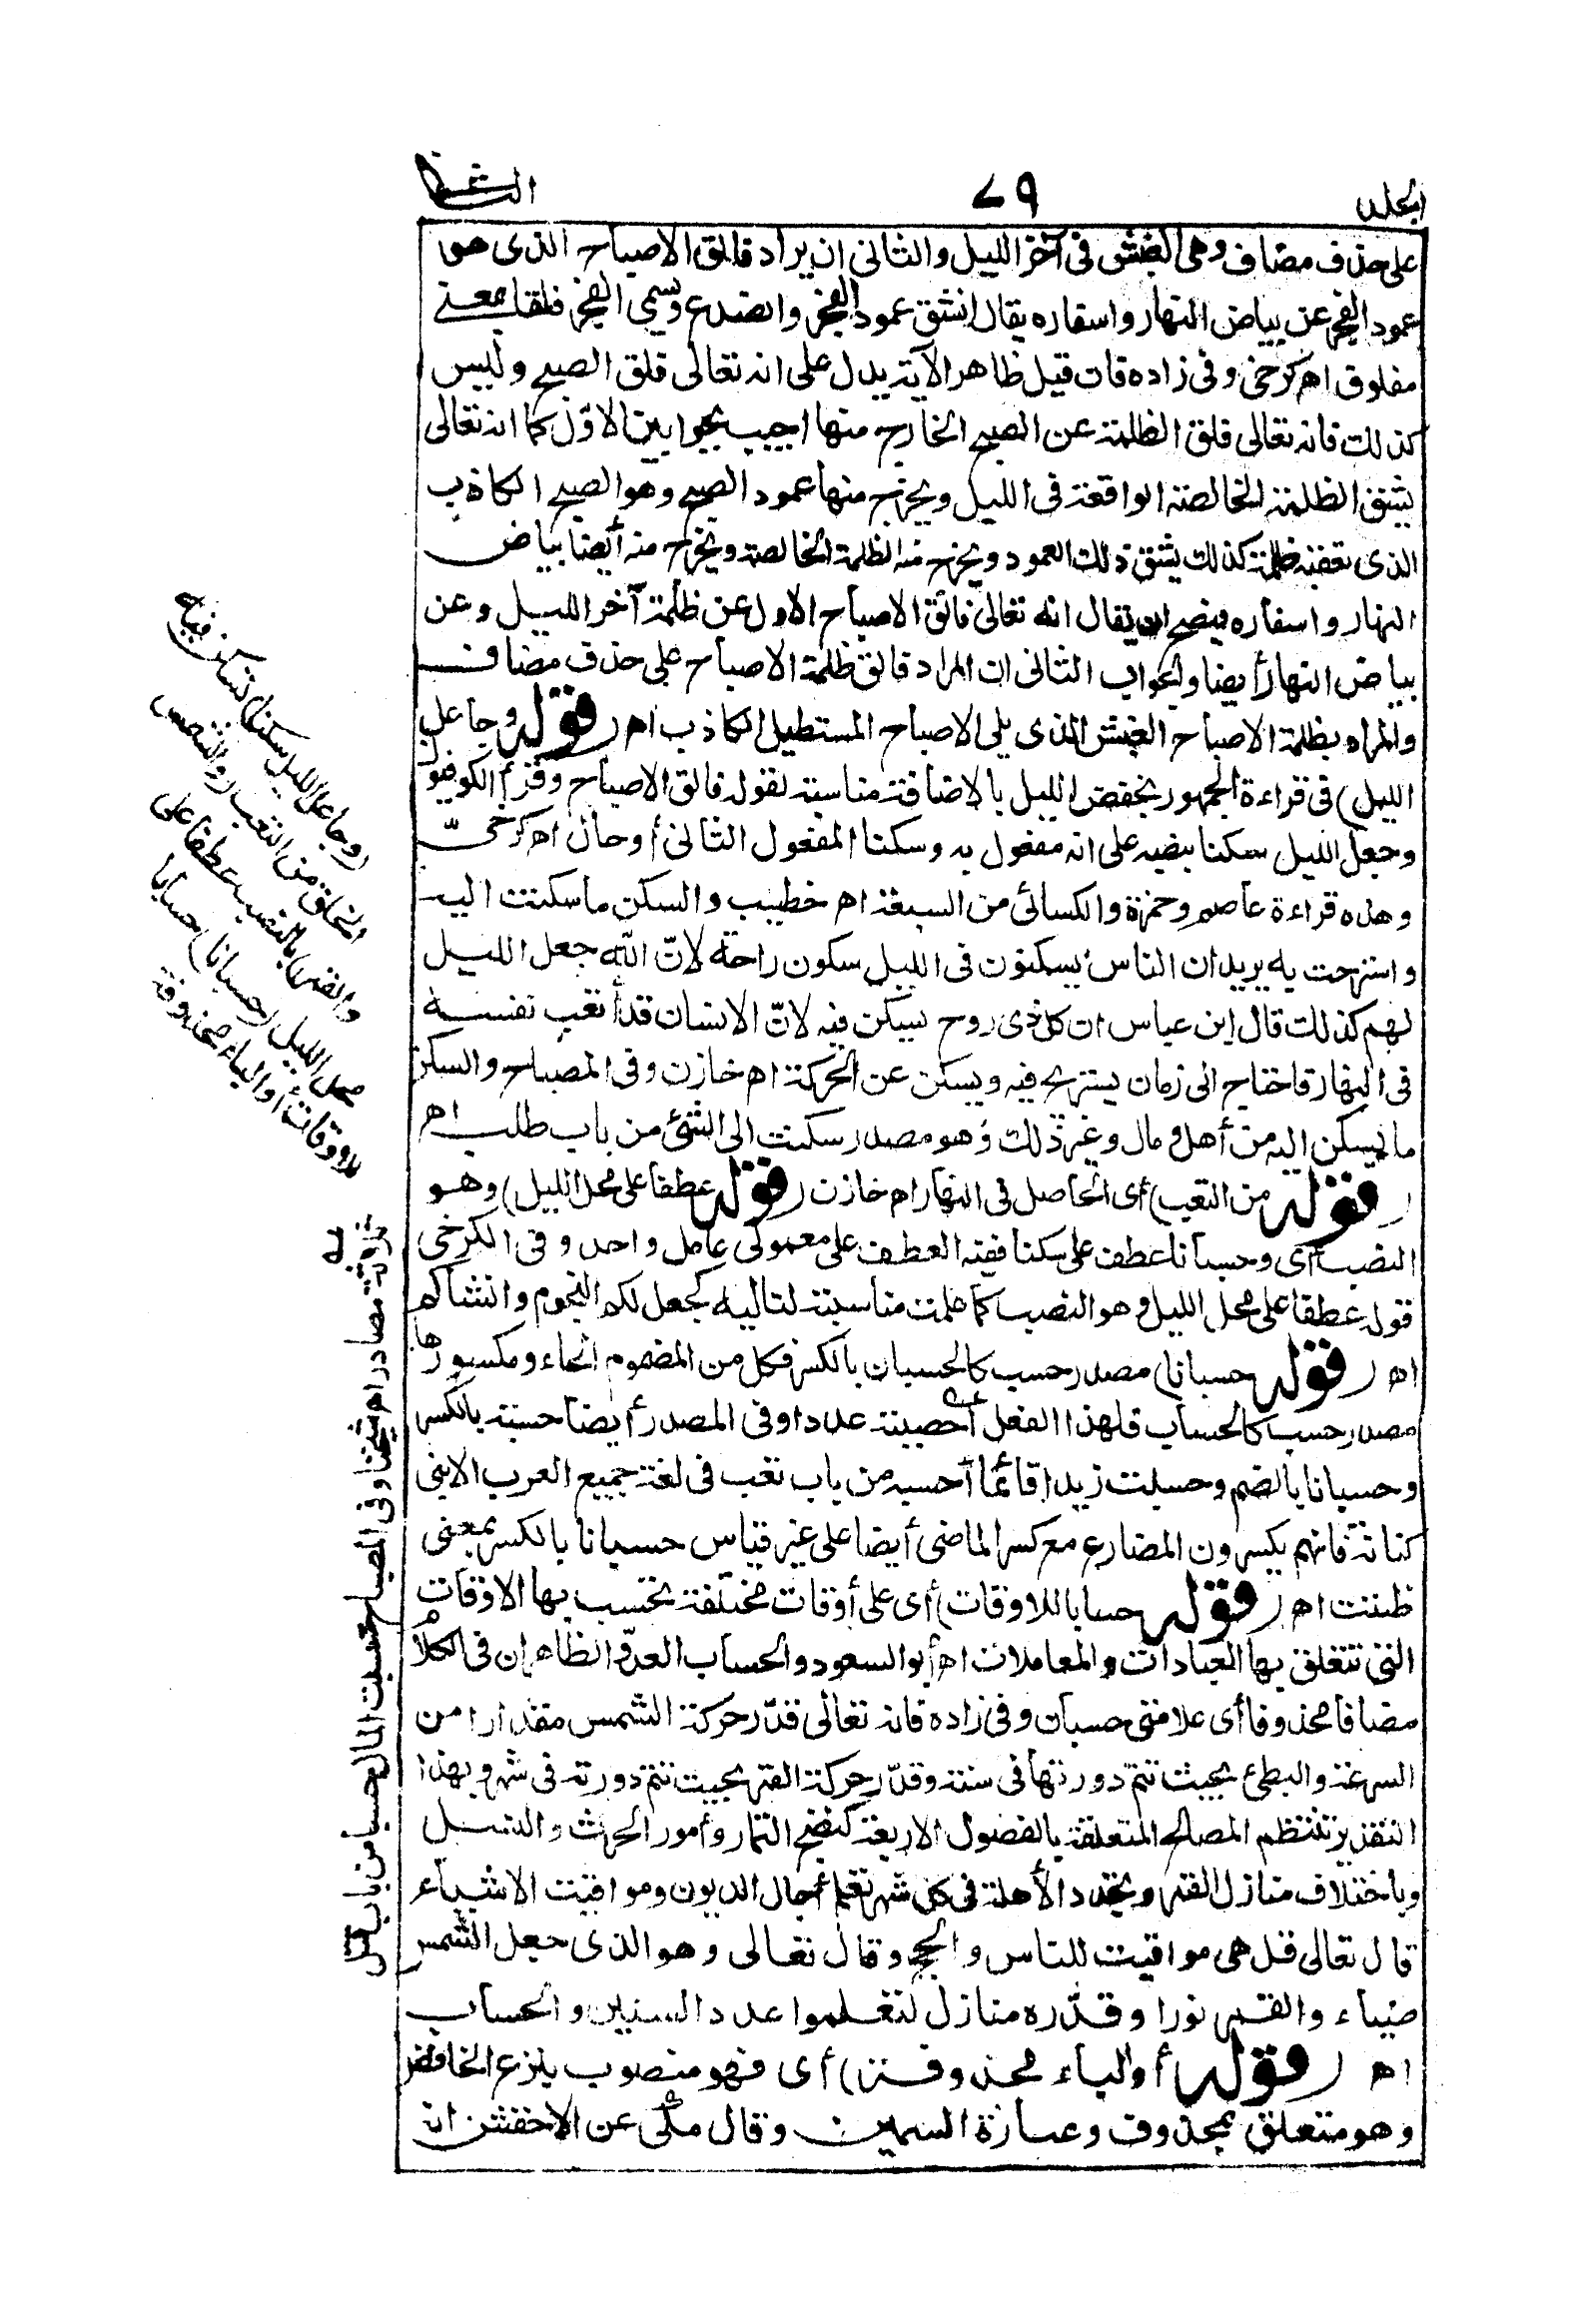 الجلد ٧٩ الثانى
على حذف مضاف وهى الغبش فى آخر الليل والثانى ان يراد فالق الاصباح الذى هو
عمود الفجر عن بياض النهار واسفاره يقال انشق عمود الفجر وانصدع وسمى الفجر فلقا بمعنى
مفلوق اه كرخى وفى زاده فان قيل ظاهر الآية يدل على انه تعالى فلق الصبح وليس
كذلك فانه تعالى فلق الظلمة عن الصبح الخارج منها اجيب بجوابين الاوّل كما انه تعالى
يشق الظلمة الخالصة الواقعة فى الليل ويخرج منها عمود الصبح وهو الصبح الكاذب
الذى تعقبه ظلمة كذلك يشق ذلك العمود ويخرج منه الظلمة الخالصة ويخرج منه أيضا بياض
النهار واسفاره فيصح ان يقال انه تعالى فالق الاصباح الاول عن ظلمة آخر الليل وعن
بياض النهار أيضا والجواب الثانى ان المراد فالق ظلمة الاصباح على حذف مضاف
والمراد بظلمة الاصباح الغبش الذى يلى الاصباح المستطيل الكاذب اه (قوله وجاعل
الليل) فى قراءة الجمهور بخفض الليل بالاضافة مناسبة لقوله فالق الاصباح وقرأ الكوفيون
وجعل الليل سكنا بنصبه على انه مفعول به وسكنا المفعول الثانى أو حال اه كرخىّ
وهذه قراءة عاصم وحمزة والكسائى من السبعة اه خطيب والسكن ما سكنت اليه
واسترحت به يريد ان الناس يسكنون فى الليل سكون راحة لانّ الله جعل الليل
لهم كذلك قال ابن عباس ان كل ذى روح يسكن فيه لانّ الانسان قد أتعب نفسه
فى النهار فاحتاج الى زمان يستريح فيه ويسكن عن الحركة اه خازن وفى المصباح والسكن
ما يسكن اليه من أهل ومال وغير ذلك وهو مصدر سكنت الى الشئ من باب طلب اه
(قوله من التعب) أى الحاصل فى النهار اه خازن (قوله عطفا على محل الليل) وهو
النصب أى وحسبانا عطف على سكنا ففيه العطف على معمولى عامل واحد وفى الكرخى
قوله عطفا على محل الليل وهو النصب كما علمت مناسبة لتاليه كجعل لكم النجوم وانشأكم
اه (قوله حسبانا) مصدر حسب كالحسبان بالكسر فكل من المضموم الحاء ومكسورها
مصدر حسب كالحساب فلهذا الفعل أحصيته عددا وفى المصدر أيضا حسبة بالكسر
وحسبانا بالضم وحسبت زيدا قائما أحسبه من باب تعب فى لغة جميع العرب الا بنى
كنانة فانهم يكسرون المضارع مع كسر الماضى أيضا على غير قياس حسبانا بالكسر بمعنى
ظننت اه (قوله حسابا للاوقات) أى على أوقات مختلفة يحتسب بها الاوقات
التى تتعلق بها العبادات والمعاملات اه أبو السعود والحساب العدّ والظاهر ان فى الكلام
مضافا محذوفا أى علامتى حسبان وفى زاده فانه تعالى قدّر حركة الشمس مقدارا من
السرعة والبطئ بحيث تتم دورتها فى سنة وقدّر حركة القمر بحيث تتم دورته فى شهر وبهذا
التقدير تنتظم المصالح المتعلقة بالفصول الاربعة كنضج الثمار وأمور الحرث والنسل
وباختلاف منازل القمر وتجدد الأهلة فى كل شهر تعلم آجال الديون ومواقيت الاشياء
قال تعالى قل هى مواقيت للناس والحج وقال تعالى وهو الذى جعل الشمس
ضياء والقمر نورا وقدّره منازل لتعلموا عدد السنين والحساب
اه (قوله أو الباء محذوفة) أى فهو منصوب بنزع الخافض
وهو متعلق بمحذوف وعبارة السمين وقال مكى عن الاخفش انه
(وجاعل الليل سكنا) تسكن فيه
الخلق من التعب (والشمس
والقمر) بالنصب عطفا على
محل الليل (حسبانا) حسابا
للاوقات أو الباء محذوفة
مصادر اه شيخنا وفى المصباح حسبت المال حسبا من باب قتل